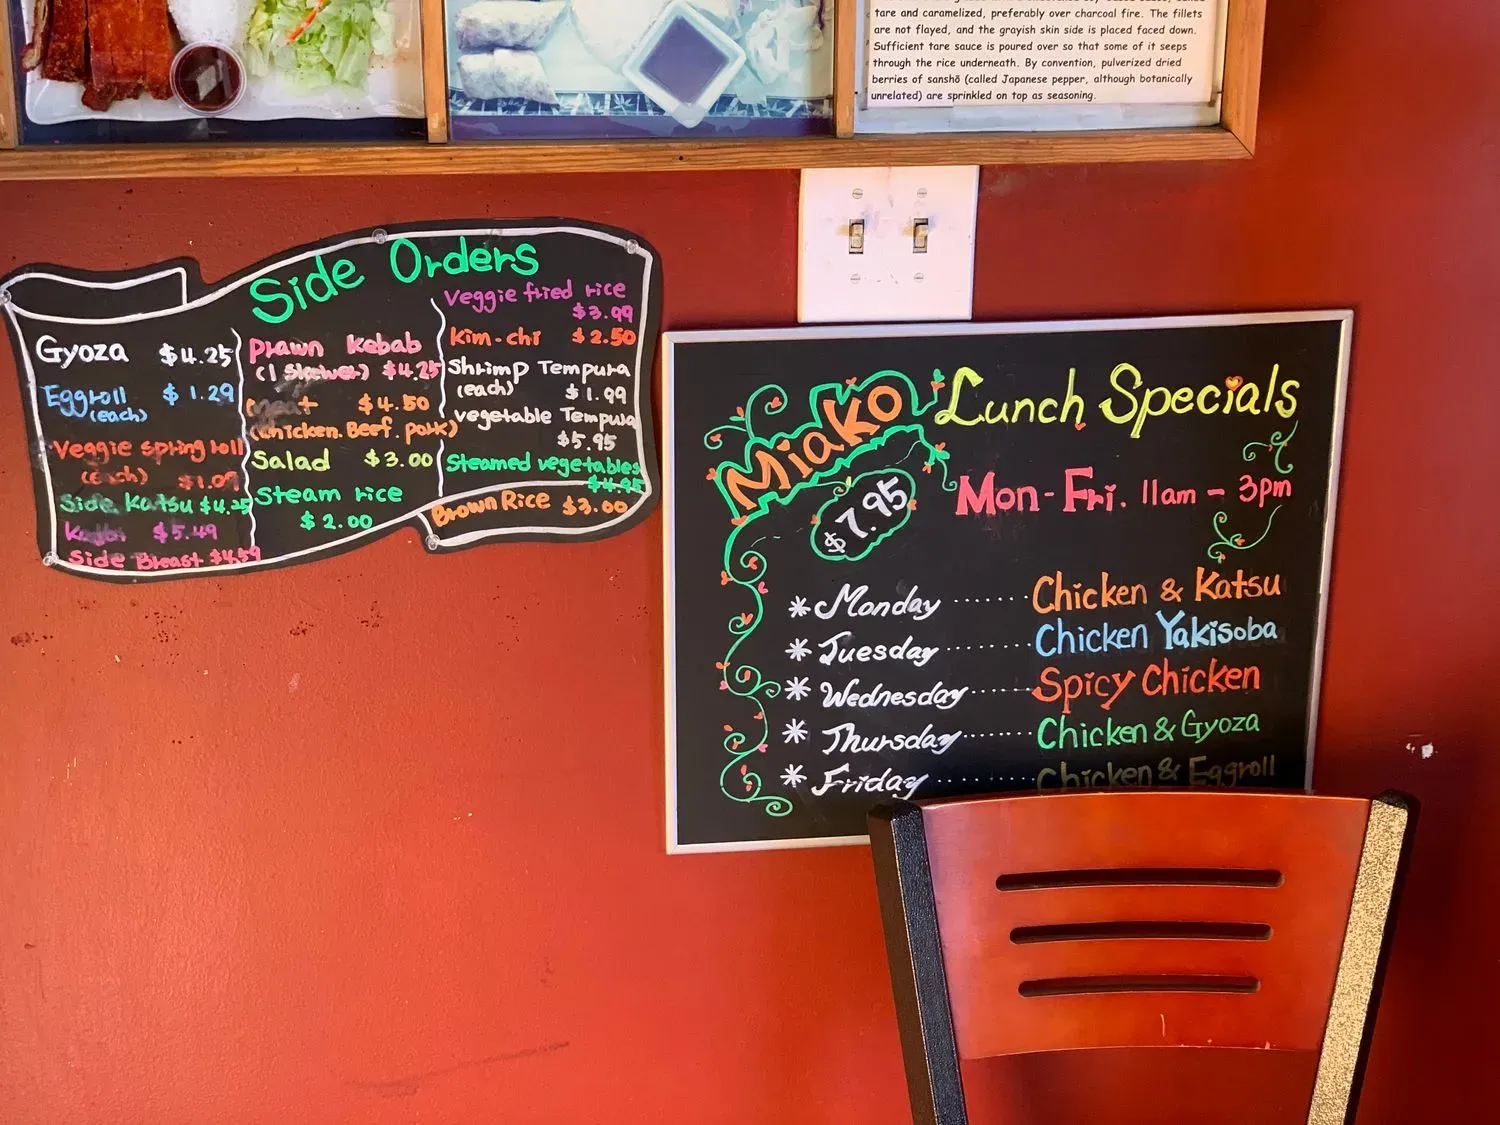 tare and caramelized, preferably over charcoal fire. The fillets
are not flayed, and the grayish skin side is placed faced down.
Sufficient tare sauce is poured over so that some of it seeps
through the rice underneath. By convention, pulverized dried
berries of sanshō (called Japanese pepper, although botanically
unrelated) are sprinkled on top as seasoning.
Side Orders
Gyoza $4.25
Eggroll $1.29
(each)
Veggie spring roll
(each) $1.09
Side Katsu $4.25
$5.49
Side Breast
Prawn Kebab
(1 Skewer) $4.25
meat $4.50
(chicken. Beef. pork)
Salad $3.00
Steam rice
$2.00
Veggie fried rice
$3.99
Kim-chi $2.50
Shrimp Tempura
(each) $1.99
vegetable Tempura
$5.95
Steamed vegetables
$4.95
Brown Rice $3.00
Miako
$7.95
Lunch Specials
Mon-Fri. 11am - 3pm
* Monday ....... Chicken & Katsu
* Tuesday ........ Chicken Yakisoba
* Wednesday ...... Spicy Chicken
* Thursday ........ Chicken & Gyoza
* Friday ........ Chicken & Eggroll